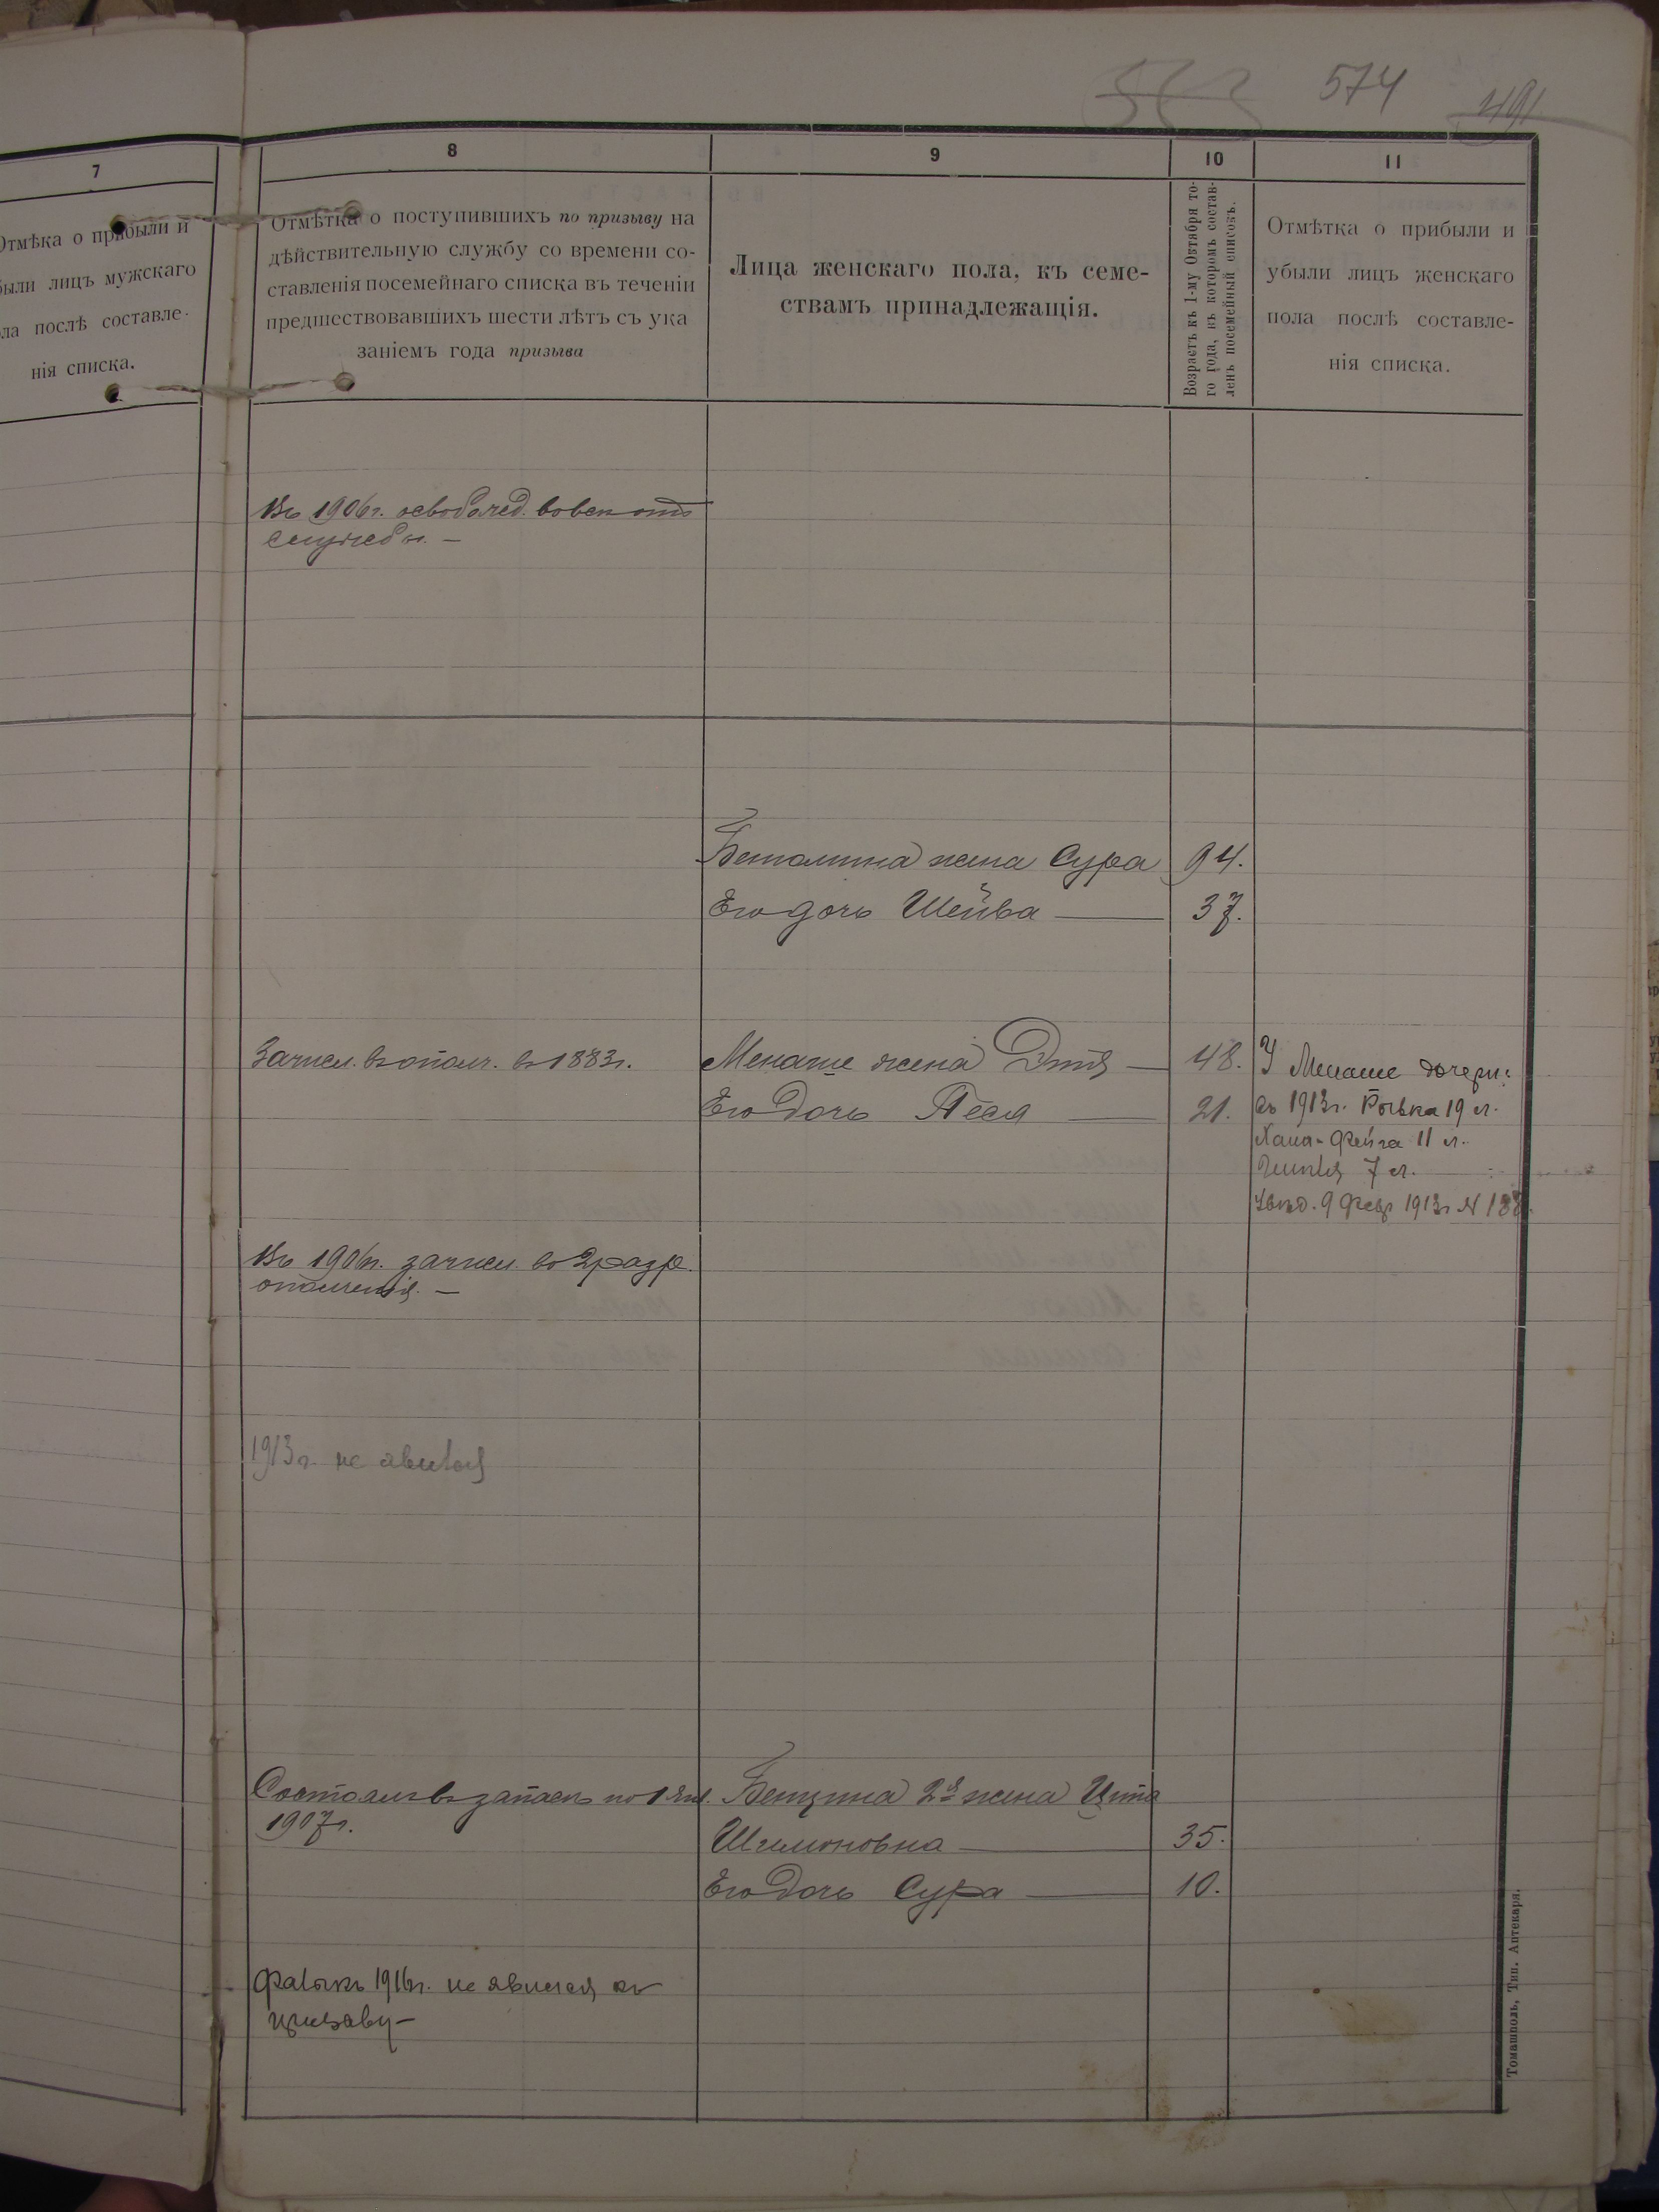 574
491
7
8
9
10
11
Отмѣка о прибыли и
были лицъ мужскаго
ла послѣ составле-
нія списка.
Отмѣтка о поступившихъ по призыву на
дѣйствительную службу со времени со-
ставленія посемейнаго списка въ теченіи
предшествовавшихъ шести лѣтъ съ ука
заніемъ года призыва
Лица женскаго пола, къ семе-
ствамъ принадлежащія.
Возрастъ къ 1-му Октября то-
го года, въ которомъ состав-
ленъ посемейный списокъ.
Отмѣтка о прибыли и
убыли лицъ женскаго
пола послѣ составле-
нія списка.
Въ 1906г. освобожд. вовсе отъ
службы. —
жена Сура 94.
Его дочь Шейва 37.
Зачисл. въ ополч. въ 1883г.
Менаше жена Этя 48.
Его дочь Песя 21.
У Менаше дочери:
въ 1913г. Рывка 19 л.
Хана-Фейга 11 л.
7 л.
Увѣд. 9 Февр 1913г N
Въ 1906г. зачисл. во 2 разр.
ополченія. —
1913г. не явился
Состоялъ въ запасѣ по 1 Янв.
1907г.
Бенциона 2я жена Ита
Шлимоновна 35.
Его дочь Сура 10.
1916г. не явился къ
призыву —
Томашполь, Тип. Аптекаря.